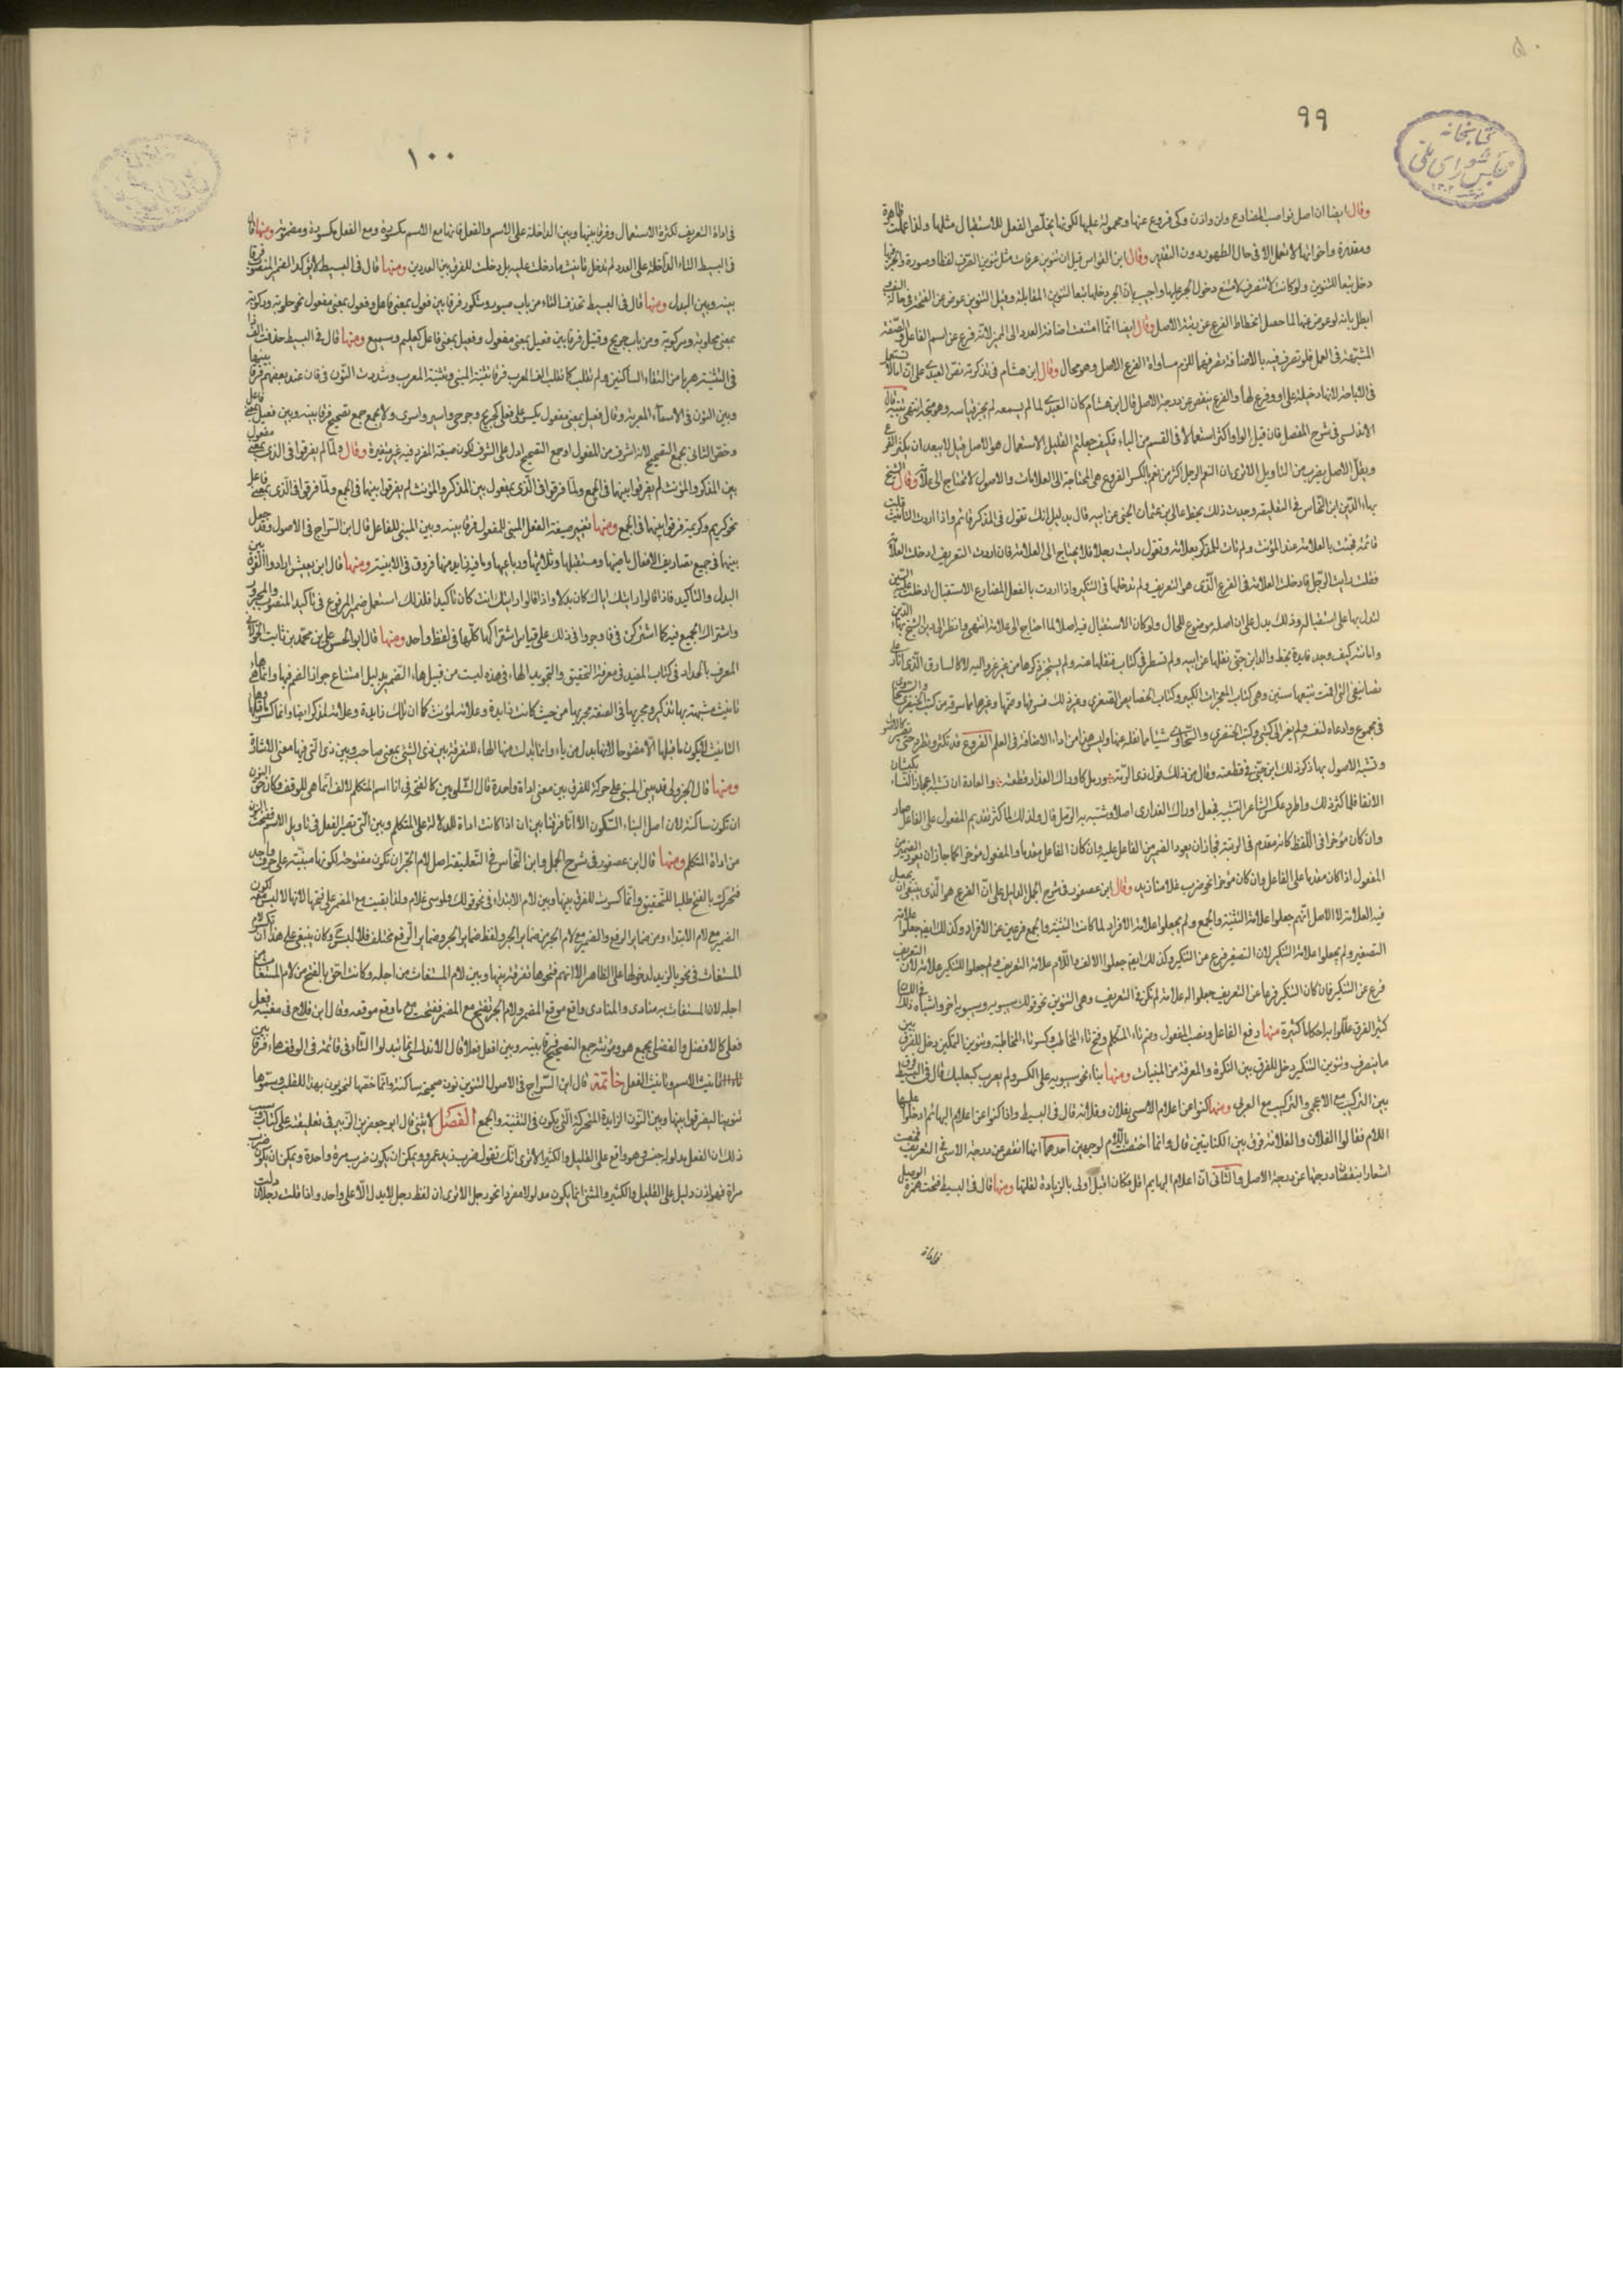 ٩٩
كتابخانه
مجلس شورای ملی
وقال ايضا ان اصل نواصب المضارع ان ولن واذن وكى فروع عنها ومحمولة عليها لكونها يخلص الفعل للاستقبال مثلها ولهذا عملت ظاهرة
ومقدرة واخواتها لا تعمل الا فى حال الظهور دون التقدير وقال ابن القواس قيل ان تنوين عرفات مثل تنوين الصرف لفظا وصورة والجر فيها
دخل تبعا للتنوين ولو كانت لا تنصرف لامتنع دخول الجر عليها واجيب بان الجر دخلها تبعا لتنوين المقابلة وقيل التنوين عوض من الفتحة فى حالة النصب
ابطل بانه لو عوض عنها لما حصل انحطاط الفرع عن رتبة الاصل وقال ايضا انما امتنعت اضافة العدد الى المميز لانه فرع عن اسم الفاعل والصفة
المشبهة فى العمل فلو تصرف فيه بالاضافة تصرفهما للزم مساواة الفرع الاصل وهو محال وقال ابن هشام فى تذكرته نص العبدى على ان اما لا تستعمل
فى الاباحة لانها دخيلة على او وفرع لها والفرع ينقص عن درجة الاصل قال ابن هشام كان العبدى لما لم يسمعه لم يجز قياسه وهو متجه انتهى تنبيه قال
الاندلسى فى شرح المفصل فان قيل الواو اكثر استعمالا فى القسم من الباء فكيف جعلتم القليل الاستعمال هو الاصل قيل لا يبعد ان يكثر الفرع
ويقل الاصل بضرب من التاويل الا ترى ان نعم الرجل اكثر من نعم بالكسر الفروع هى المحتاجة الى العلامات والاصول لا تحتاج الى علامة وقال الشيخ
بهاء الدين ابن النحاس فى التعليقة وجدت ذلك بخط عالى بن عثمان الجنى عن ابيه قال بدليل انك تقول فى المذكر قائم واذا اردت التانيث قلت
قائمة فجئت بالعلامة عند المؤنث ولم تات للمذكر بعلامة وتقول رايت رجلا فلا يحتاج الى العلامة فان اردت التعريف ادخلت العلامة
فقلت رايت الرجل فادخلت العلامة فى الفرع الذى هو التعريف ولم تدخلها فى التنكير واذا اردت بالفعل المضارع الاستقبال ادخلت عليه السين
لتدل بها على استقباله وذلك يدل على ان اصله موضوع للحال ولو كان الاستقبال فيه اصلا لما احتاج الى علامة انتهى وانظر الى دين الشيخ بهاء الدين
وامانته كيف وجد فايدة بخط والد ابن جنى نقلها عن ابيه ولم تسطر فى كتاب فنقلها عنه ولم يستجز ذكرها من غير عزو اليه لا كالسارق الذى اغار على
تصانيفى التى اقمت فى تتبعها سنين وهى كتاب المعجزات الكبير وكتاب الخصايص الصغرى وغير ذلك فسرقها وضمها وغيرها مما سرقه من كتب الخيضرى والسخاوى
فى مجموع وادعاه لنفسه ولم يعز الى كتبى وكتب الخيضرى والسخاوى شيئا مما نقله عنها وليس هذا من اداء الامانة فى العلم الفروع قد تكثر وتطرد حتى تصير كالاصول
وتشبه الاصول بها ذكر ذلك ابن جنى فى قطعته وقال من ذلك قول ذى الرمة ورمل كاوراك العذارى قطعته والعادة ان تشبه اعجاز النساء بكثبان
الانقا فلما كثر ذلك واطرد عكس الشاعر التشبيه فجعل اوراك العذارى اصلا وشبه به الرمل قال ولذلك لما كثر تقديم المفعول على الفاعل صار
وان كان مؤخرا فى اللفظ كانه مقدم فى الرتبة فجاز ان يعود الضمير من الفاعل عليه وان كان الفاعل مقدما والمفعول مؤخرا كما جاز ان يعود الضمير من
المفعول اذا كان مقدما على الفاعل وان كان مؤخرا نحو ضرب غلامه زيد وقال ابن عصفور فى شرح الجمل الدليل على ان الفرع هو الذى ينبغى ان يجعل
فيه العلامة لا الاصل انهم جعلوا علامة التثنية والجمع ولم يجعلوا علامة الافراد لما كانت التثنية والجمع فرعين عن الافراد وكذلك ايضا جعلوا علامة
التصغير ولم يجعلوا علامة التكبير لان التصغير فرع عن التكبير وكذلك ايضا جعلوا الالف واللام علامة التعريف ولم يجعلوا للتنكير علامة لان التعريف
فرع عن التنكير فان كان التنكير فرعا عن التعريف جعلوا له علامة لم تكن فى التعريف وهى التنوين نحو قولك سيبويه وسيبويه اخر واشباه ذلك
كثير الفرق عللوا به احكاما كثيرة منها رفع الفاعل ونصب المفعول وضم تاء المتكلم وفتح تاء المخاطب وكسر تاء المخاطبة وتنوين التمكين دخل للفرق بين
ما ينصرف وتنوين التنكير دخل للفرق بين النكرة والمعرفة من المبنيات ومنها بناء نحو سيبويه على الكسر ولم يعرب كبعلبك قال فى البسيط فرق
بين التركيب مع الاعجمى والتركيب مع العربى ومنها كنوا عن اعلام الاناسى بفلان وفلانة قال فى البسيط واذا كنوا عن اعلام البهائم ادخلوا عليها
اللام فقالوا الفلان والفلانة فرق بين الكنايتين قال وانما اختصت باللام لوجهين احدهما انها انقص عن درجة الاناسى فى التعريف
اشعارا بنقصان درجتها عن درجة الاصل والثانى ان اعلام البهايم اقل فكان اقبل اولى بالزيادة لقلتها ومنها قال فى البسيط فتحت همزة الوصل
١٠٠
فى اداة التعريف لكثرة الاستعمال وفرقا بينها وبين الداخلة على الاسم والفعل فانها مع الاسم مكسورة ومع الفعل مكسورة ومضمومة ومنها قال
فى البسيط التاء الداخلة على العدد لم تدخل لتانيث ما دخلت عليه بل دخلت للفرق بين العددين ومنها قال فى البسيط لا يؤكد الضمير المنصوب فرقا
بينه وبين البدل ومنها قال فى البسيط تحذف التاء من باب صبور وشكور فرقا بين فعول بمعنى فاعل وفعول بمعنى مفعول نحو حلوبة وركوبة
بمعنى محلوبة ومركوبة ومن باب جريح وقتيل فرقا بين فعيل بمعنى مفعول وفعيل بمعنى فاعل كعليم وسميع ومنها قال فى البسيط حذفت الف ذا
فى التثنية هربا من التقاء الساكنين ولم تقلب كما تقلب الف المعرب فرقا بين تثنية المبنى وتثنية المعرب وشددت النون فى ذان عند بعضهم فرقا بينها
وبين النون فى الاسماء المعربة وقال فعيل بمعنى مفعول يكسر على فعلى كجريح وجرحى واسير واسرى ولا يجمع جمع تصحيح فرقا بينه وبين فعيل بمعنى فاعل
وخص الثانى بجمع التصحيح لانه اشرف من المفعول وجمع التصحيح ادل على الشرف لكون صيغة المفرد فيه غير متغيرة وقال ولما لم يفرقوا فى الذى بمعنى مفعول
بين المذكر والمؤنث لم يفرقوا بينهما فى الجمع ولما فرقوا فى الذى بمعنى فاعل
نحو كريم وكريمة فرقوا بينهما فى الجمع ومنها تغيير صيغة الفعل المبنى للمفعول فرقا بينه وبين المبنى للفاعل قال ابن السراج فى الاصول وقد جعل
بينهما فى جميع تصاريف الافعال ماضيها ومستقبلها وثلاثيها ورباعيها وما فيه زايد منها فروق فى الابنية ومنها قال ابن يعيش ارادوا الفرق بين
البدل والتاكيد فاذا قالوا رايتك اياك كان بدلا واذا قالوا رايتك انت كان تاكيدا فلذلك استعمل ضمير المرفوع فى تاكيد المنصوب والمجرور
واشترك الجميع فيه كما اشتركن فى نا وجروا فى ذلك على قياس اشتراكها كلها فى لفظ واحد ومنها قال ابو الحسن على بن محمد بن ثابت الخولانى
المعروف بالحداد فى كتاب المفيد فى معرفة التحقيق والتجويد الهاء فى هذه ليست من قبيل هاء الضمير بدليل امتناع جواز الضم فيها وانما هى هاء
تانيث مشبهة بها
التانيث لا يكون ما قبلها الا مفتوحا لانها بدل من ياء وانما ابدلت منها الهاء للتفرقة بين ذى التى بمعنى صاحب وبين ذى التى فيها معنى الاشارة
ومنها قال الجزولى قد يبنى المبنى على حركة للفرق بين معنى اداة واحدة قال الشلوبين كالفتحة فى انا اسم المتكلم لالف انما هى للوقف وكان حق النون
ان تكون ساكنة لان اصل البناء السكون الا انا فرقنا بين ان اذا كانت اداة للدلالة على المتكلم وبين التى تصير الفعل فى تاويل الاسم ففتحت النون
من اداة المتكلم ومنها قال ابن عصفور فى شرح الجمل وابن النحاس فى التعليقة اصل لام الجر ان تكون مفتوحة لكونها مبنية على حرف واحد
فتحرك بالفتح طلبا للتخفيف وانما كسرت للفرق بينها وبين لام الابتداء فى نحو قولك لموسى غلام ولهذا بقيت مع المضمر على فتحها لانها لا لبس معه
الضمير مع لام الابتداء من ضماير الرفع والضمير مع لام الجر من ضماير الجر ولفظ ضماير الجر وضماير الرفع مختلف فلا لبس وكان ينبغى على هذا ان تكسر لام
المستغاث فى نحو يا لزيد لدخولها على الظاهر الا انهم فتحوها تفرقة بينها وبين لام المستغاث من اجله وكانت احق بالفتح من لام المستغاث من
اجله لان المستغاث به منادى والمنادى واقع موقع المضمر ولام الجر تفتح مع المضمر ففتحت مع ما وقع موقعه وقال ابن فلاح فى مغنيه فعل
فعلى كالافضل والفضلى يجمع هو ومؤنثه جمع التصحيح فرقا بينه وبين افعل فعلاء قال الانما تبدلوا التاء فى قائمة فى الوقف هاء فرقا بين
تاء تانيث الاسم وتانيث الفعل خاتمة قال ابن السراج فى الاصول التنوين نون صحيحة ساكنة وانما خصها النحويون بهذا اللقب وسموها
تنوينا ليفرقوا بينها وبين النون الزايدة المتحركة التى تكون فى التثنية والجمع الفعل لا يثنى قال ابو جعفر بن الزبير فى تعليقه على كتاب سيبويه
ذلك ان الفعل مدلوله جنس وهو واقع على القليل والكثير الا ترى انك تقول ضرب زيد عمرو ويمكن ان يكون ضرب مرة واحدة ويمكن ان يكون ضرب
مرات فهو اذن دليل على القليل والكثير والمثنى انما يكون مدلوله مفردا نحو رجل الا ترى ان لفظ رجل لا يدل الا على واحد واذا قلت رجلان دلت